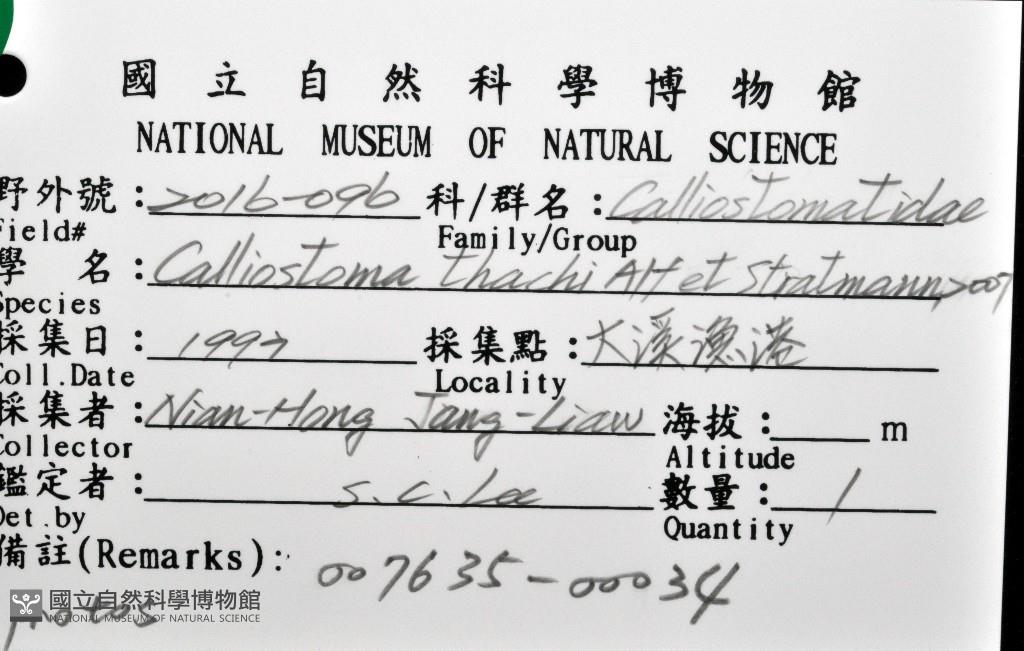 國立自然科學博物館
NATIONAL MUSEUM OF NATURAL SCIENCE
野外號：2016-096 科/群名：Calliostomatidae
Field# Family/Group
學 名：Calliostoma thachi Alf et Stratmann, 2007
Species
採集日：1997 採集點：大溪漁港
Coll.Date Locality
採集者：Nian-Hong Jang-Liaw 海拔：____ m
Collector Altitude
鑑定者：S. C. Lee 數量：1
Det.by Quantity
備註(Remarks)：007635-00034
photos
國立自然科學博物館
NATIONAL MUSEUM OF NATURAL SCIENCE